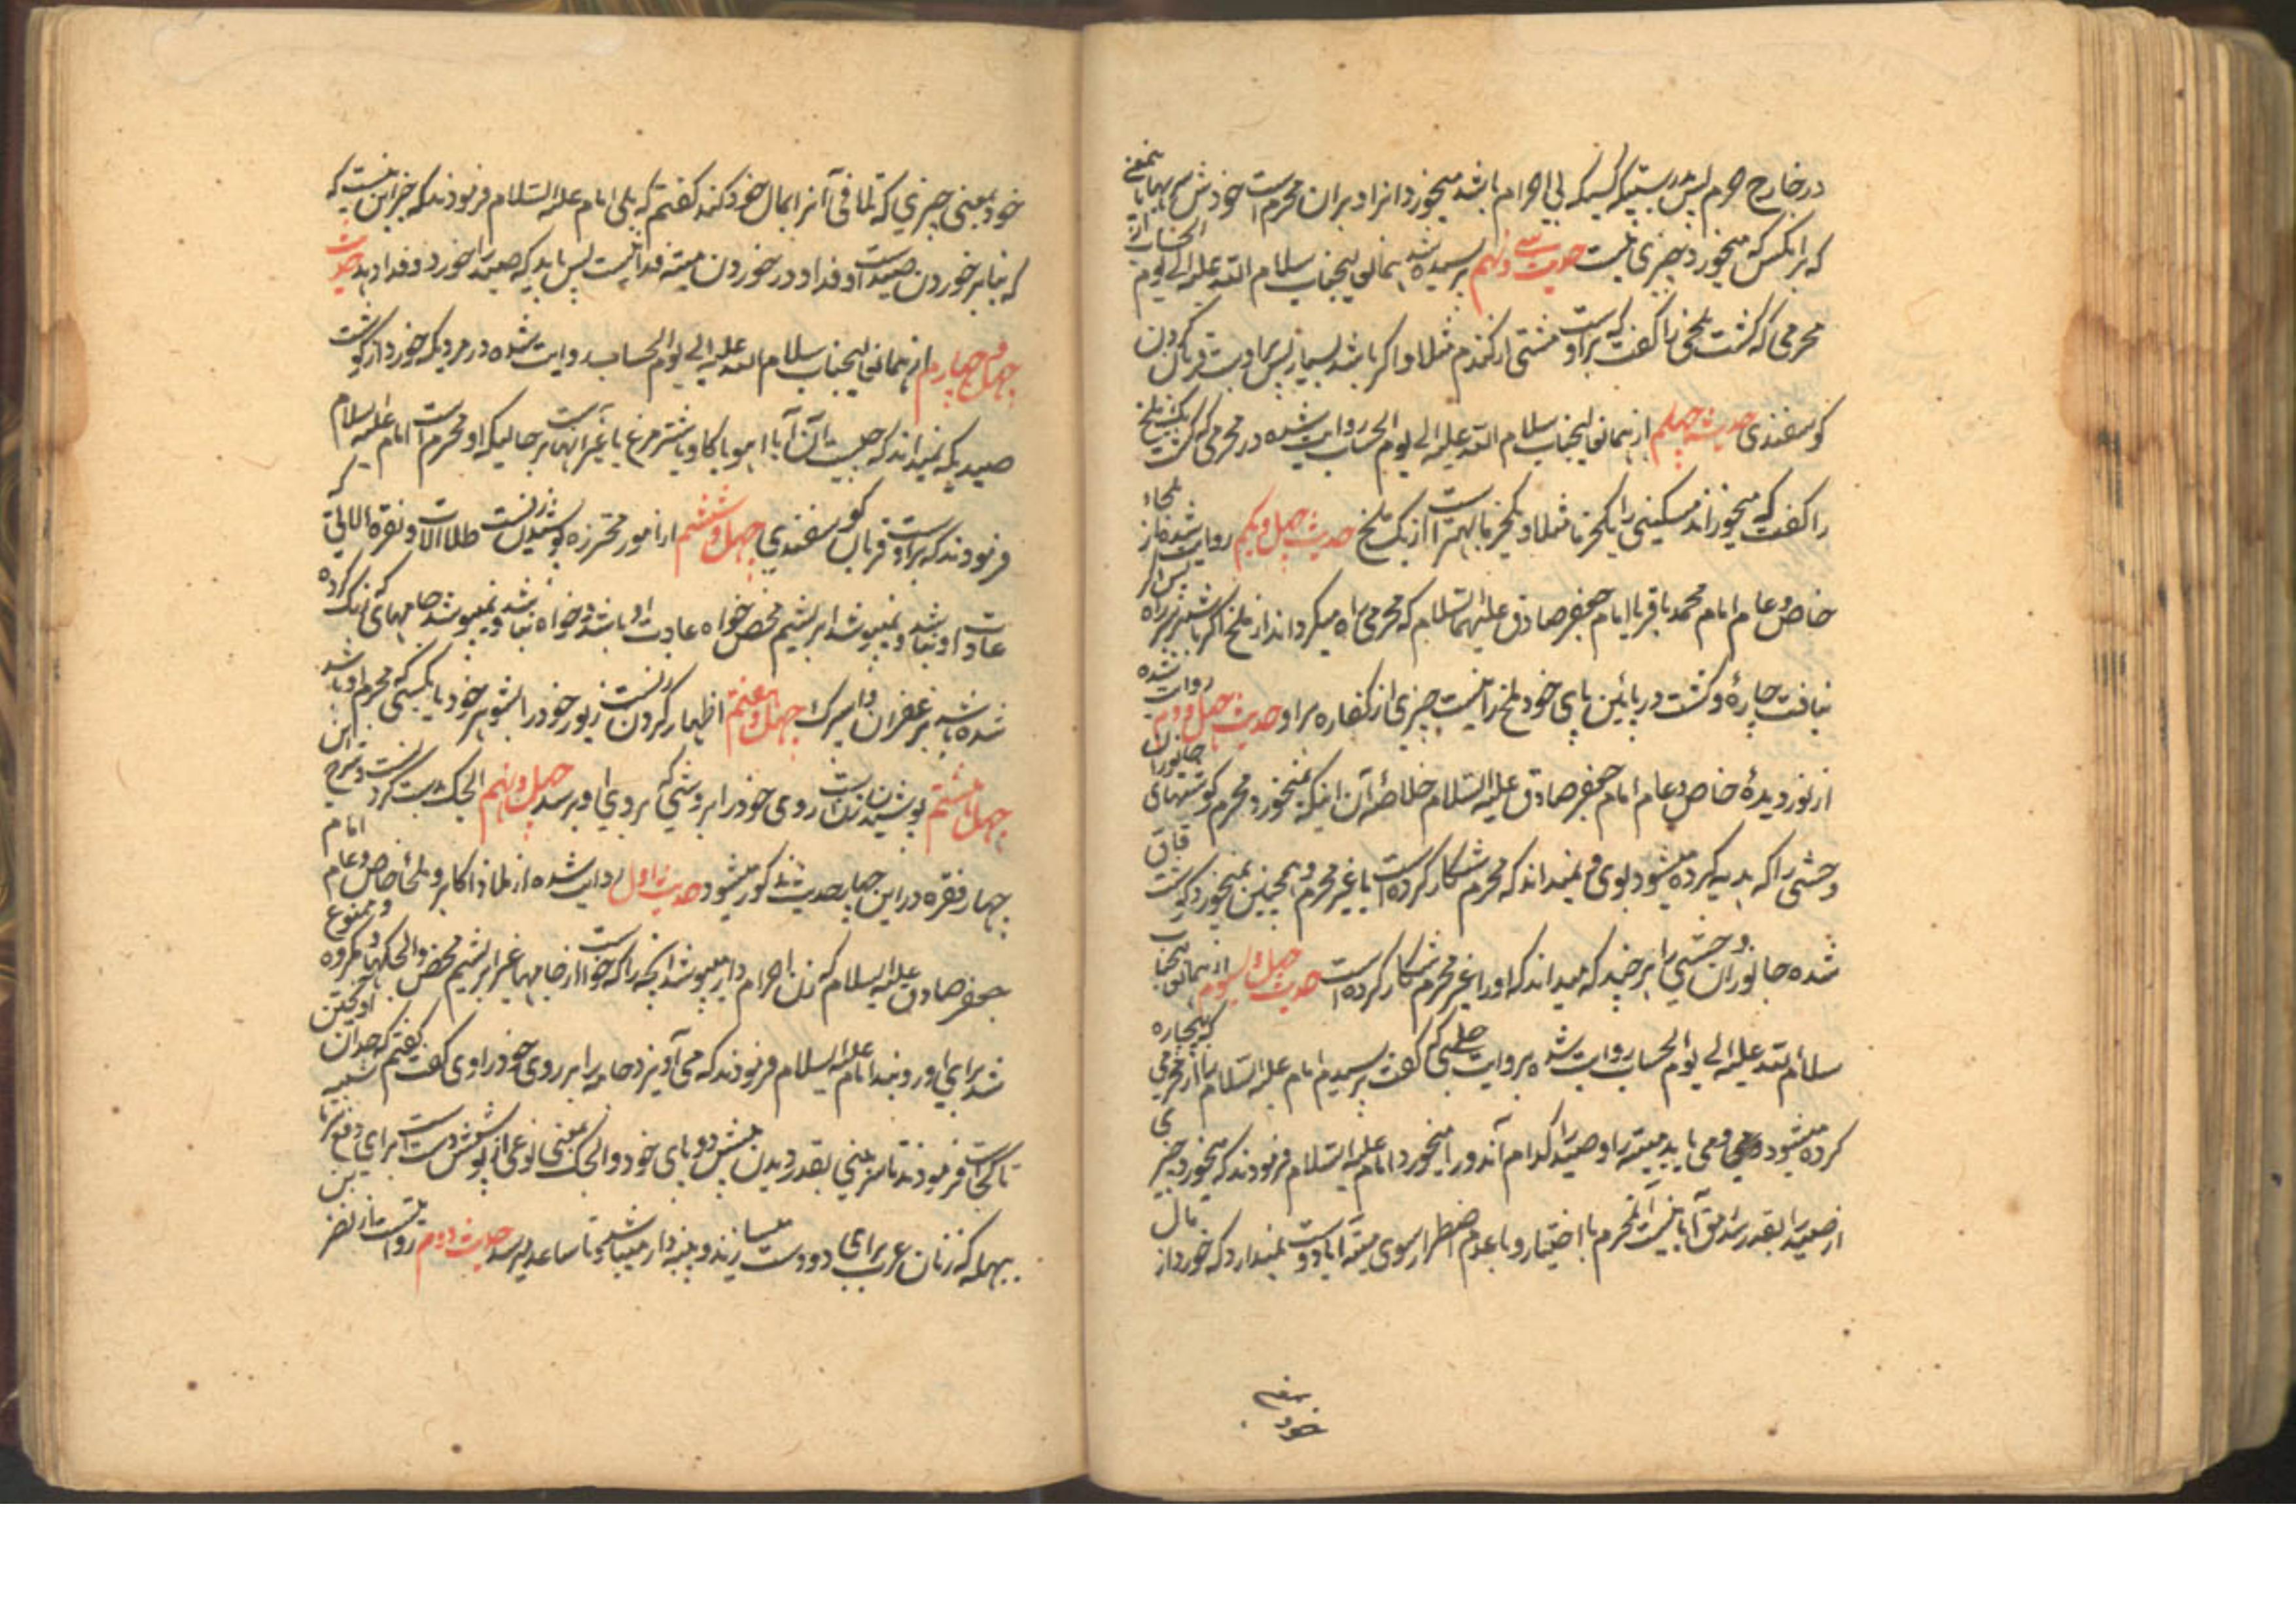 در خارج حرم پس بدرستیکه کسیکه بی احرام باشد میخورد انرا و بران محرم است خودش بهمین معنی
که برانکس که میخورد چیزی نیست حدیث سی و نهم پرسیده شد بهمانعالیجناب سلام الله علیه الی یوم الحساب از
محرمی که کشت ملخی را گفت که براوست مشتی از کندم مثلا و اگر باشد بسیار پس براوست قربان کردن
کوسفندی حدیث چهلم از همانعالیجناب سلام الله علیه الی یوم الحساب روایت شده در محرمی که کشت یک ملخ
را گفت که میخوراند مسکینی را یکخرما مثلا و یکخرما بهتر است از یک ملخ حدیث چهل و یکم روایت شده از ملجاء
خاص و عام امام محمد باقر یا امام جعفر صادق علیهما السلام که محرمی راه میکرداند از ملخ اگر باشد بر سر راه پس اگر
نیافت چارهٔ و کشت در پائین پای خود ملخ را نیست چیزی از کفاره براو حدیث چهل و دوم روایت شده
از نور دیدهٔ خاص و عام امام جعفر صادق علیه السلام خلاصه آن اینکه نمیخورد محرم کوشتهای جانوران
وحشی را که هدیه کرده میشود بوی و نمیداند که محرم شکار کرده است یا غیر محرم و همچنین نمیخورد کوشت قاق
شده جانوران وحشی را هرچند که میداند که اورا غیر محرم شکار کرده است حدیث چهل و سیوم از همانعالیجناب
سلام الله علیه الی یوم الحساب روایت شده بروایت حلبی که گفت پرسیدم امام علیه السلام را از محرمی که بیچاره
کرده میشود و می یابد میته را و صید را کدام آندو را میخورد امام علیه السلام فرمودند که میخورد چیزی
از صید را بقدر سد رمق آیا نیست آنمحرم با اختیار و با عدم اضطرار سوی میته آیا دوست نمیدارد که خورد از مال
خود
خود یعنی چیزی که تلافی آنرا بمال خود کند گفتم که بلی امام علیه السلام فرمودند که جز این نیست که
که بنا بر خوردن صید است او فدا و در خوردن میته فدا نیست پس باید که صید را خورد و فدا دهد حدیث
چهل و چهارم از همانعالیجناب سلام الله علیه الی یوم الحساب روایت شده در مردیکه خورد از کوشت
صیدیکه نمیداند که چیست آن آیا اهو یا کاو یا شتر مرغ یا غیر انهاست برحالیکه او محرم است امام علیه السلام
فرمودند که براوست قربان کوسفندی چهل و ششم از امور محترزه پوشیدن زنست طلا الات و نقره الاتی که
عادت او نباشد و نمیپوشد ابریشم محض خواه عادت او باشد و خواه نباشد و نمیپوشد جامهای که رنک کرده
شده باشد بزعفران و اسپرک چهل و هفتم اظهار کردن زنست زیور خود را بشوهر خود یا بکسی که محرم او باشد
چهل و هشتم پوشیدن زنست روی خود را بروشی که بروی او برسد چهل و نهم الجک دست کردنست و شرح این
چهار فقره در این چهار حدیث مذکور میشود حدیث اول روایت شده از ملاذ اکابر و ملجاء خاص و عام امام
جعفر صادق علیه السلام که زن احرام دار میپوشد انچه را که خواست از جامها غیر ابریشم محض و الجکها و مکروه و ممنوع
شد برای او روبند امام علیه السلام فرمودند که می آویزد جامه را بر روی خود راوی گفت گفتم که حد آن آویختن
تا کجاست فرمودند تا سر بینی بقدر دیدن پیش دو پای خود و الجک یعنی نوعی از پوشش دست است برای دفع سرما
بیهمله که زنان عرب برای دو دست میسازند و پنبه دار میباشد و تا ساعد میرسد حدیث دوم روایتست از نضر بن